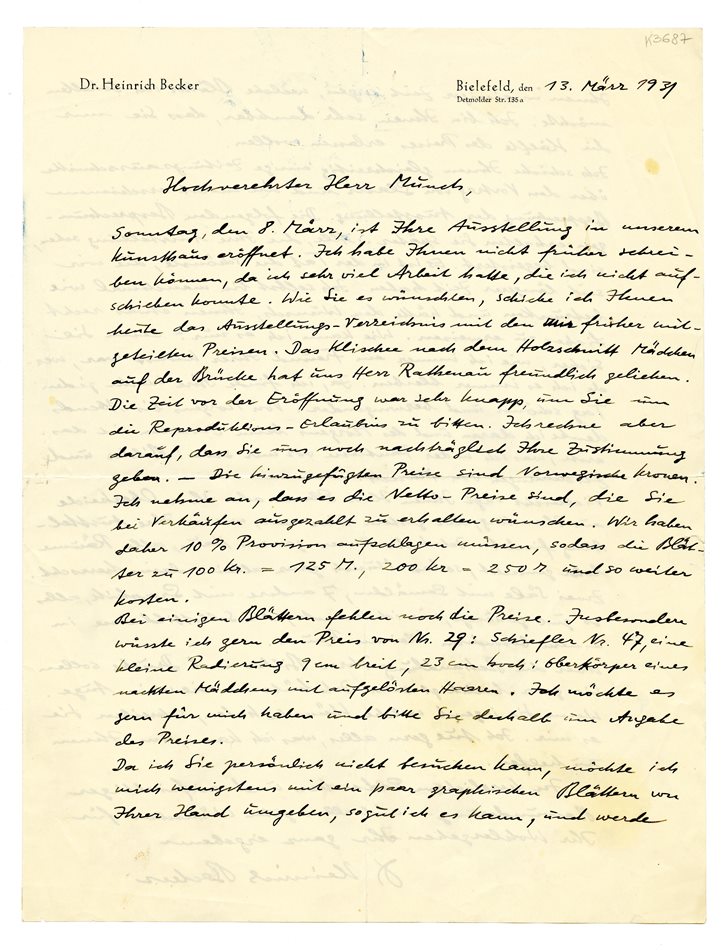 K3687
Dr. Heinrich Becker
Bielefeld, den 13. März 1931
Detmolder Str. 135 a
Hochverehrter Herr Munch,
Sonntag, den 8. März, ist Ihre Ausstellung in unserem
Kunsthaus eröffnet. Ich habe Ihnen nicht früher schrei-
ben können, da ich sehr viel Arbeit hatte, die ich nicht auf-
schieben konnte. Wie Sie es wünschten, schicke ich Ihnen
heute das Ausstellungs-Verzeichnis mit den mir früher mit-
geteilten Preisen. Das Klischee nach dem Holzschnitt Mädchen
auf der Brücke hat uns Herr Rathenau freundlich geliehen.
Die Zeit vor der Eröffnung war sehr knapp, um Sie um
die Reproduktions-Erlaubnis zu bitten. Ich rechne aber
darauf, dass Sie uns noch nachträglich Ihre Zustimmung
geben. — Die hinzugefügten Preise sind Norwegische Kronen.
Ich nehme an, dass es die Netto-Preise sind, die Sie
bei Verkäufen ausgezahlt zu erhalten wünschen. Wir haben
daher 10 % Provision aufschlagen müssen, sodass die Blät-
ter zu 100 Kr. = 125 M., 200 Kr = 250 M und so weiter
kosten.
Bei einigen Blättern fehlen noch die Preise. Insbesondere
wüsste ich gern den Preis von Nr. 29: Schiefler Nr. 47, eine
kleine Radierung 9 cm breit, 23 cm hoch: Oberkörper eines
nackten Mädchens mit aufgelösten Haaren. Ich möchte es
gern für mich haben und bitte Sie deshalb um Angabe
des Preises.
Da ich Sie persönlich nicht besuchen kann, möchte ich
mich wenigstens mit ein paar graphischen Blättern von
Ihrer Hand umgeben, sogut ich es kann, und werde